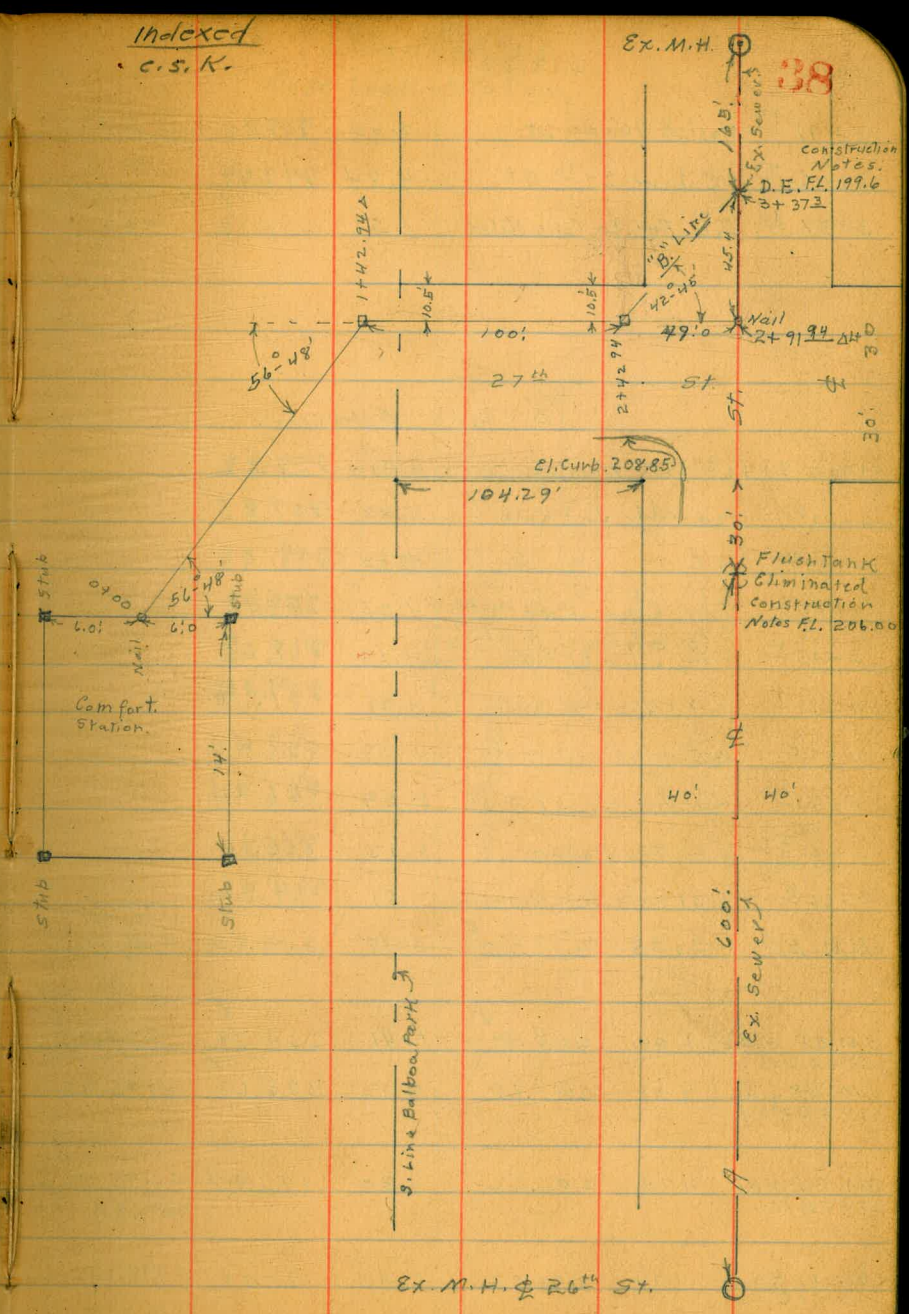 Indexed
C.S.K.
Ex. M.H.
38
165'
Ex. Sewer
Construction
Notes.
D.E. F.L. 199.6
3+37 3
45.4
"B" Line
42°-45'
1+42.94 Δ
10.5'
10.5'
100'
49.0
Nail
2+91 94 Δ4
2+42 94
56°-48'
27th St.
St.
30
30'
El. Curb. 208.85
104.29'
30'
Flush Tank
Eliminated
Construction
Notes F.L. 206.00
Stub
0+00
56°-48'
Stub
6.0'
6.0
Nail
Comfort.
Station.
14'
40'
40'
Stub
Stub
600'
Ex. Sewer
S. Line Balboa Park
Ex. M.H. ℄ 26th St.